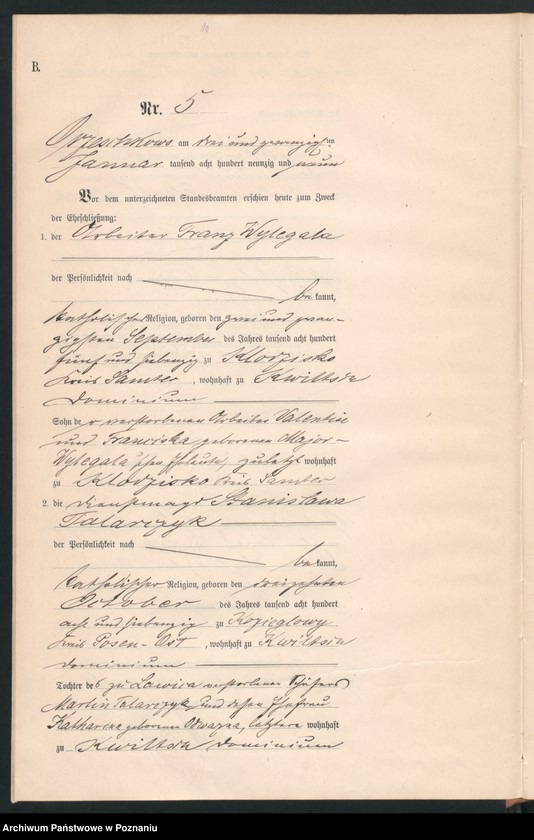 10
B.
Nr. 5
Orzeschkowo am drei und zwanzigsten
Januar tausend acht hundert neunzig und neun
Vor dem unterzeichneten Standesbeamten erschien heute zum Zweck
der Eheschließung:
1. der Arbeiter Franz Wylegala
der Persönlichkeit nach
be kannt,
katholischer Religion, geboren den zwei und zwan-
zigsten September des Jahres tausend acht hundert
fünf und siebenzig zu Klodzisko
Kreis Samter, wohnhaft zu Kwiltsch
Dominium
Sohn der verstorbenen Arbeiter Valentin
und Franciska geborenen Major-
Wylegala'schen Eheleute, zuletzt wohnhaft
zu Klodzisko Kreis Samter
2. die Dienstmagd Stanislawa
Tatarczyk
der Persönlichkeit nach
be kannt,
katholischer Religion, geboren den dreizehnten
October des Jahres tausend acht hundert
acht und siebenzig zu Kozieglowy
Kreis Posen-Ost, wohnhaft zu Kwiltsch
Dominium
Tochter des zu Lawica verstorbenen Schäfers
Martin Tatarczyk und dessen Ehefrau
Katharina geborene Odwazna, letztere wohnhaft
zu Kwiltsch Dominium
Archiwum Państwowe w Poznaniu